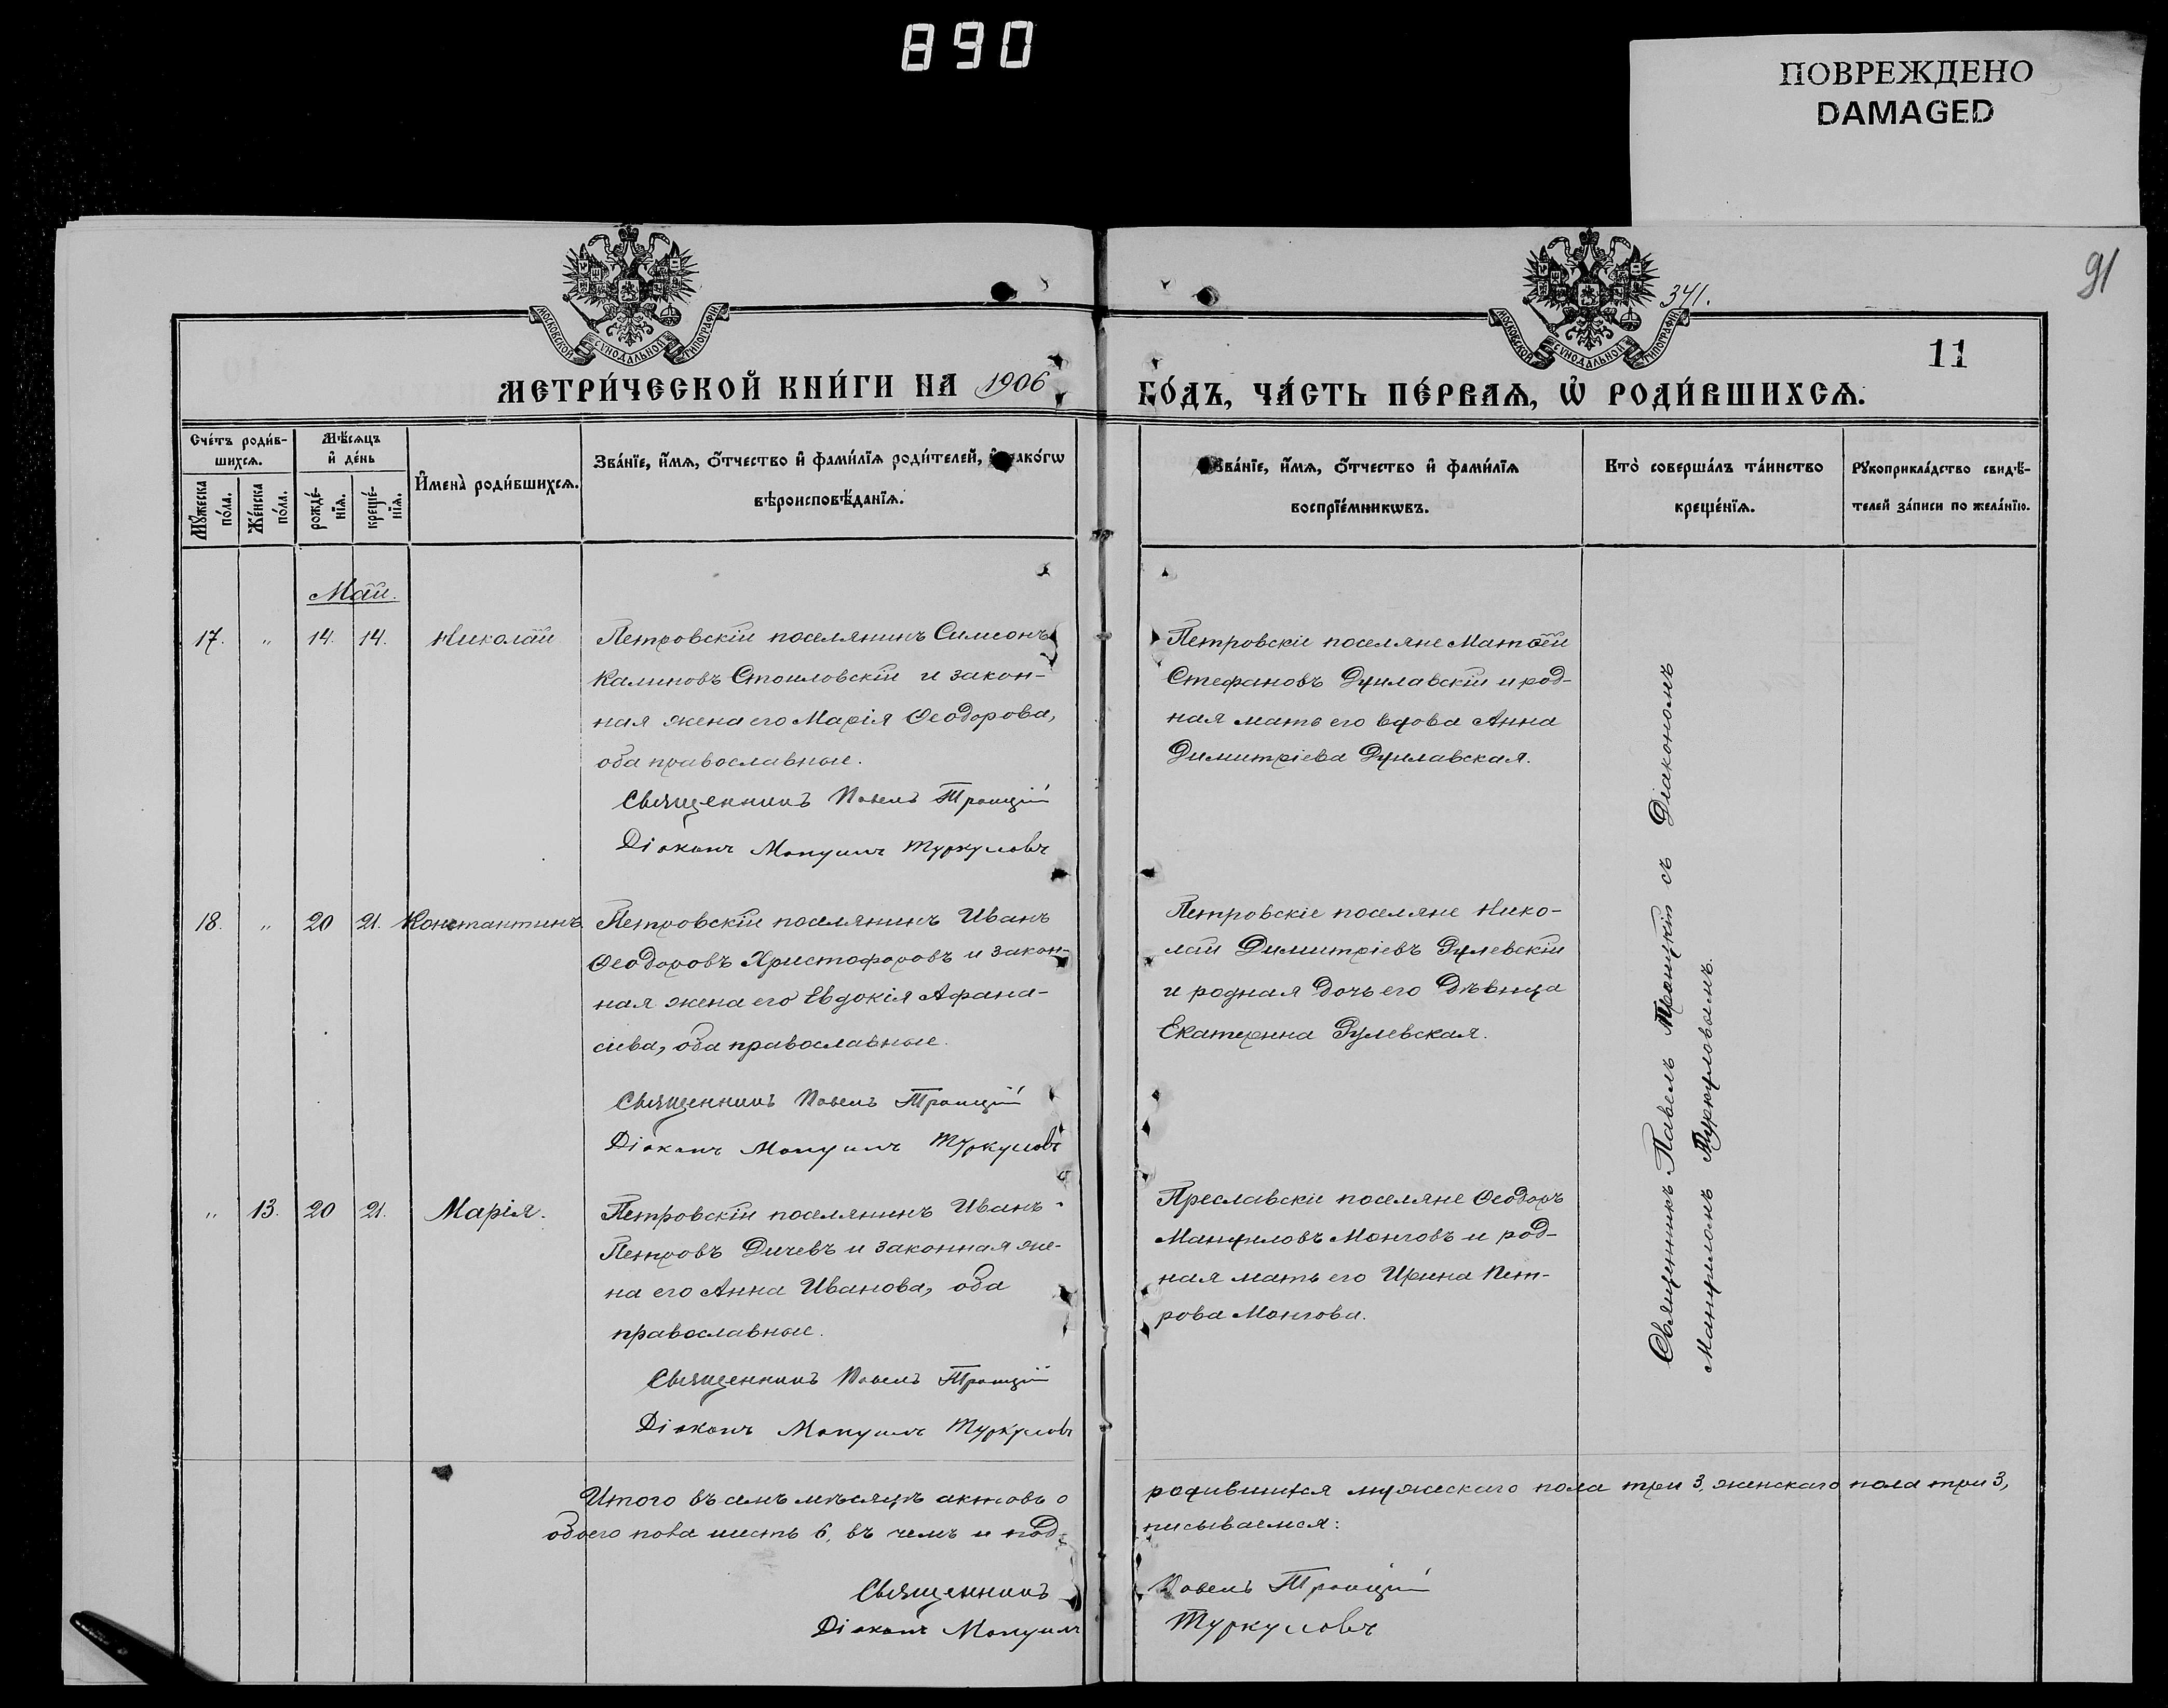 890
ПОВРЕЖДЕНО
DAMAGED
91
341.
11
МОСКОВСКОЙ СУНОДАЛЬНОЙ ТИПОГРАФІИ
МОСКОВСКОЙ СУНОДАЛЬНОЙ ТИПОГРАФІИ
МЕТРИ́ЧЕСКОЙ КНИ́ГИ НА 1906
ГО́ДЪ, ЧА́СТЬ ПЕ́РВАѦ, Ѽ РОДИ́ВШИХСѦ.
Сче́тъ роди́в-
шихсѧ.
Мꙋ́жеска по́ла.
Же́нска по́ла.
Мѣ́сѧцъ
и҆ де́нь
рожде́-
нїѧ.
креще́-
нїѧ.
И҆мена̀ роди́вшихсѧ.
Зва́нїе, и҆́мѧ, ѻ҆́тчество и҆ фами́лїѧ роди́телей, и҆ како́гѡ
вѣроисповѣ́данїѧ.
Зва́нїе, и҆́мѧ, ѻ҆́тчество и҆ фами́лїѧ
воспрїе́мникѡвъ.
Кто̀ соверша́лъ та́инство
креще́нїѧ.
Рꙋкоприкла́дство свидѣ́-
телей за́писи по жела́нїю.
Май.
17. " 14. 14. Николай
Петровскій поселянинъ Симеонъ
Калиновъ Стоиловскій и закон-
ная жена его Марія Ѳеодорова,
оба православные.
Священникъ Павелъ Троицкій
Діаконъ Мануилъ Туркуловъ
Петровскіе поселяне Матѳей
Стефановъ Дуилавскій и род-
ная мать его вдова Анна
Димитріева Дуилавская.
18. " 20 21. Константинъ
Петровскій поселянинъ Иванъ
Ѳеодоровъ Христофоровъ и закон-
ная жена его Евдокія Афана-
сиева, оба православные.
Священникъ Павелъ Троицкій
Діаконъ Мануилъ Туркуловъ
Петровскіе поселяне Нико-
лай Димитріевъ Гулевскій
и родная дочь его дѣвица
Екатерина Гулевская.
" 13. 20 21. Марія.
Петровскій поселянинъ Иванъ
Петровъ Дичевъ и законная же-
на его Анна Иванова, оба
православные.
Священникъ Павелъ Троицкій
Діаконъ Мануилъ Туркуловъ
Преславскіе поселяне Ѳеодоръ
Мануиловъ Монговъ и род-
ная мать его Ирина Пет-
рова Монгова.
Священникъ Павелъ Троицкій съ Діакономъ
Мануиломъ Туркуловымъ.
Итого въ семъ мѣсяцѣ актовъ о родившихся мужескаго пола три 3, женскаго пола три 3,
обоего пола шесть 6, въ чемъ и подписываемся:
Священникъ Павелъ Троицкій
Діаконъ Мануилъ Туркуловъ